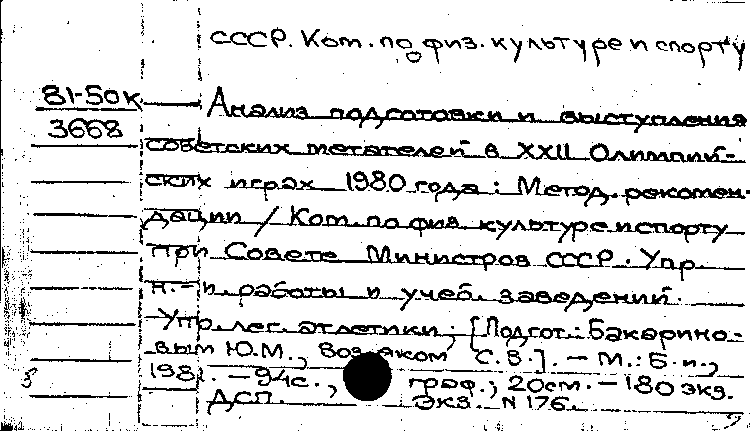 СССР. Ком. по физ. культуре и спорту
81-50к
3668
Анализ подготовки и выступления
советских метателей в XXII Олимпий-
ских играх 1980 года : Метод. рекомен-
дации / Ком. по физ. культуре и спорту
при Совете Министров СССР. Упр.
н.-и. работы и учеб. заведений.
Упр. лег. атлетики; [Подгот.: Бакарино-
вым Ю.М., С.В.]. – М.: Б.и.,
198 . – 94с., граф.; 20см. – 180 экз.
ДСП. Экз. N 176.